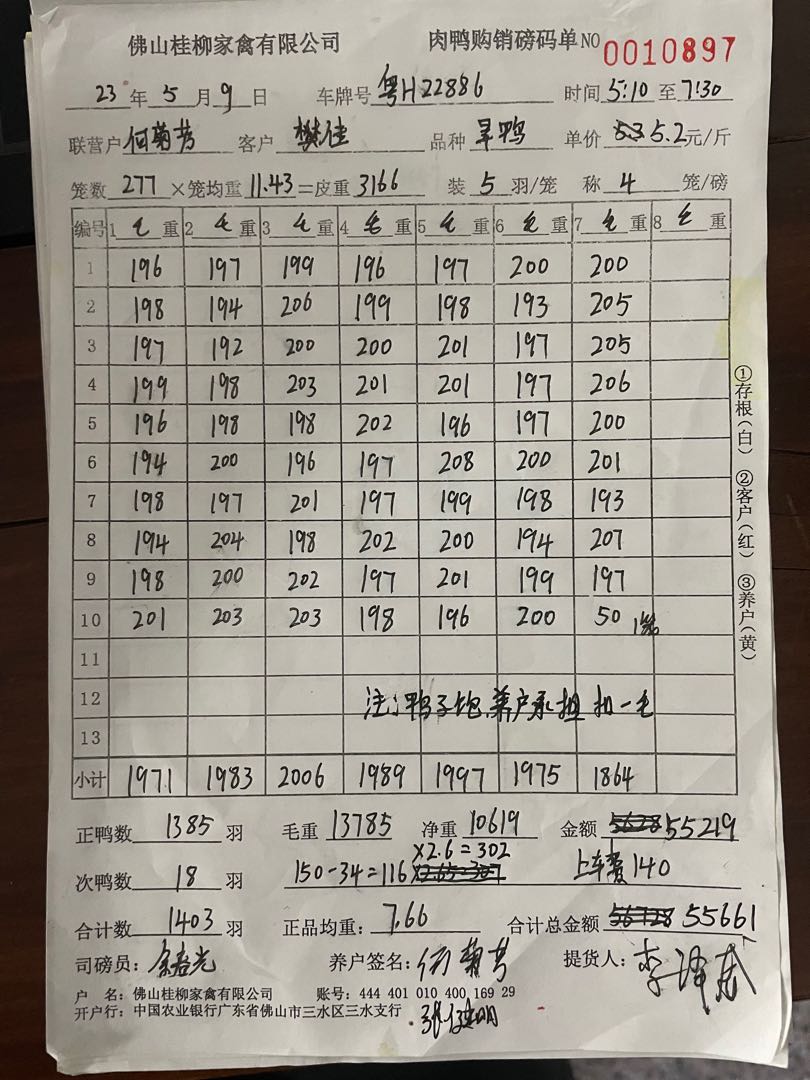 佛山桂柳家禽有限公司 肉鸭购销磅码单NO 0010897
23 年 5 月 9 日 车牌号 粤H22886 时间 5:10 至 7:30
联营户 何菊芳 客户 樊佳 品种 旱鸭 单价 5.3 5.2 元/斤
笼数 277 ×笼均重 11.43 =皮重 3166 装 5 羽/笼 称 4 笼/磅
编号 1 毛 重 2 毛 重 3 毛 重 4 毛 重 5 毛 重 6 毛 重 7 毛 重 8 毛 重
1 196 197 199 196 197 200 200
2 198 194 206 199 198 193 205
3 197 192 200 200 201 197 205
4 199 198 203 201 201 197 206
5 196 198 198 202 196 197 200
6 194 200 196 197 208 200 201
7 198 197 201 197 199 198 193
8 194 204 198 202 200 194 207
9 198 200 202 197 201 199 197
10 201 203 203 198 196 200 50 1笼
11
12 注:鸭子饱,养户承担 扣一毛
13
小计 1971 1983 2006 1989 1997 1975 1864
正鸭数 1385 羽 毛重 13785 净重 10619 金额 55219
×2.6=302
次鸭数 18 羽 150-34=116 ×2.65=307 上车费140
合计数 1403 羽 正品均重: 7.66 合计总金额 55661
司磅员: 养户签名: 何菊芳 提货人:
户 名: 佛山桂柳家禽有限公司 账号: 444 401 010 400 169 29
开户行: 中国农业银行广东省佛山市三水区三水支行
①存根(白) ②客户(红) ③养户(黄)